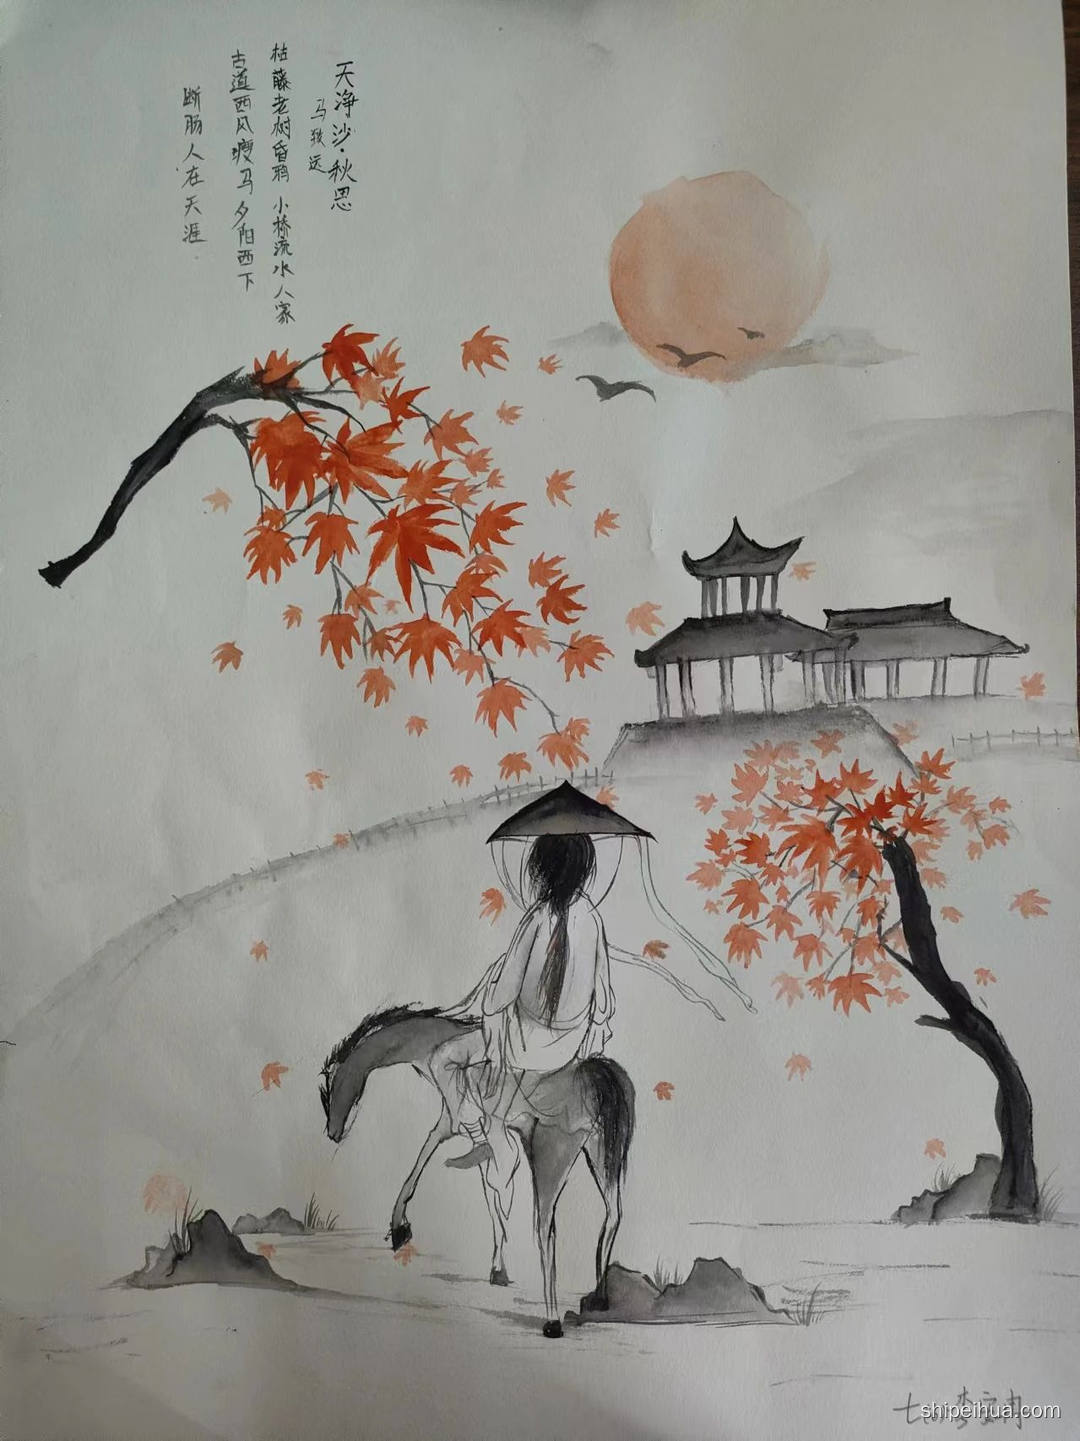 天净沙·秋思
马致远
枯藤老树昏鸦 小桥流水人家
古道西风瘦马 夕阳西下
断肠人在天涯.
shipeihua.com